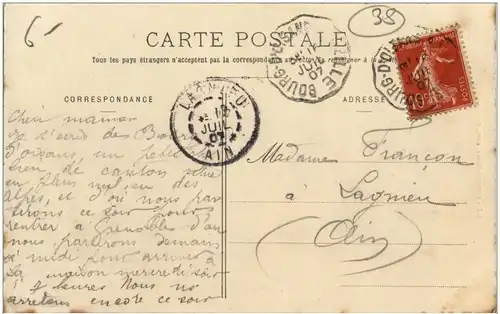 6
38
CARTE POSTALE
Tous les pays étrangers n'acceptent pas la correspondance au recto
CORRESPONDANCE
ADRESSE
BOURG-D'O
JUIL
07
LAGNIEU
JUIL
07
AIN
POSTES
Chère maman
Je t'écris de Bourg
d'oisans, un petit
de canton situé
en plein milieu des
Alpes, et d'où nous par
tirons ce soir pour
rentrer à Grenoble d'où
nous partirons demain
à midi pour arriver à
la maison mercredi soir
à 7 heures Nous nous
arretons encore ce soir
Madame Françon
à Lagnieu
(Ain)